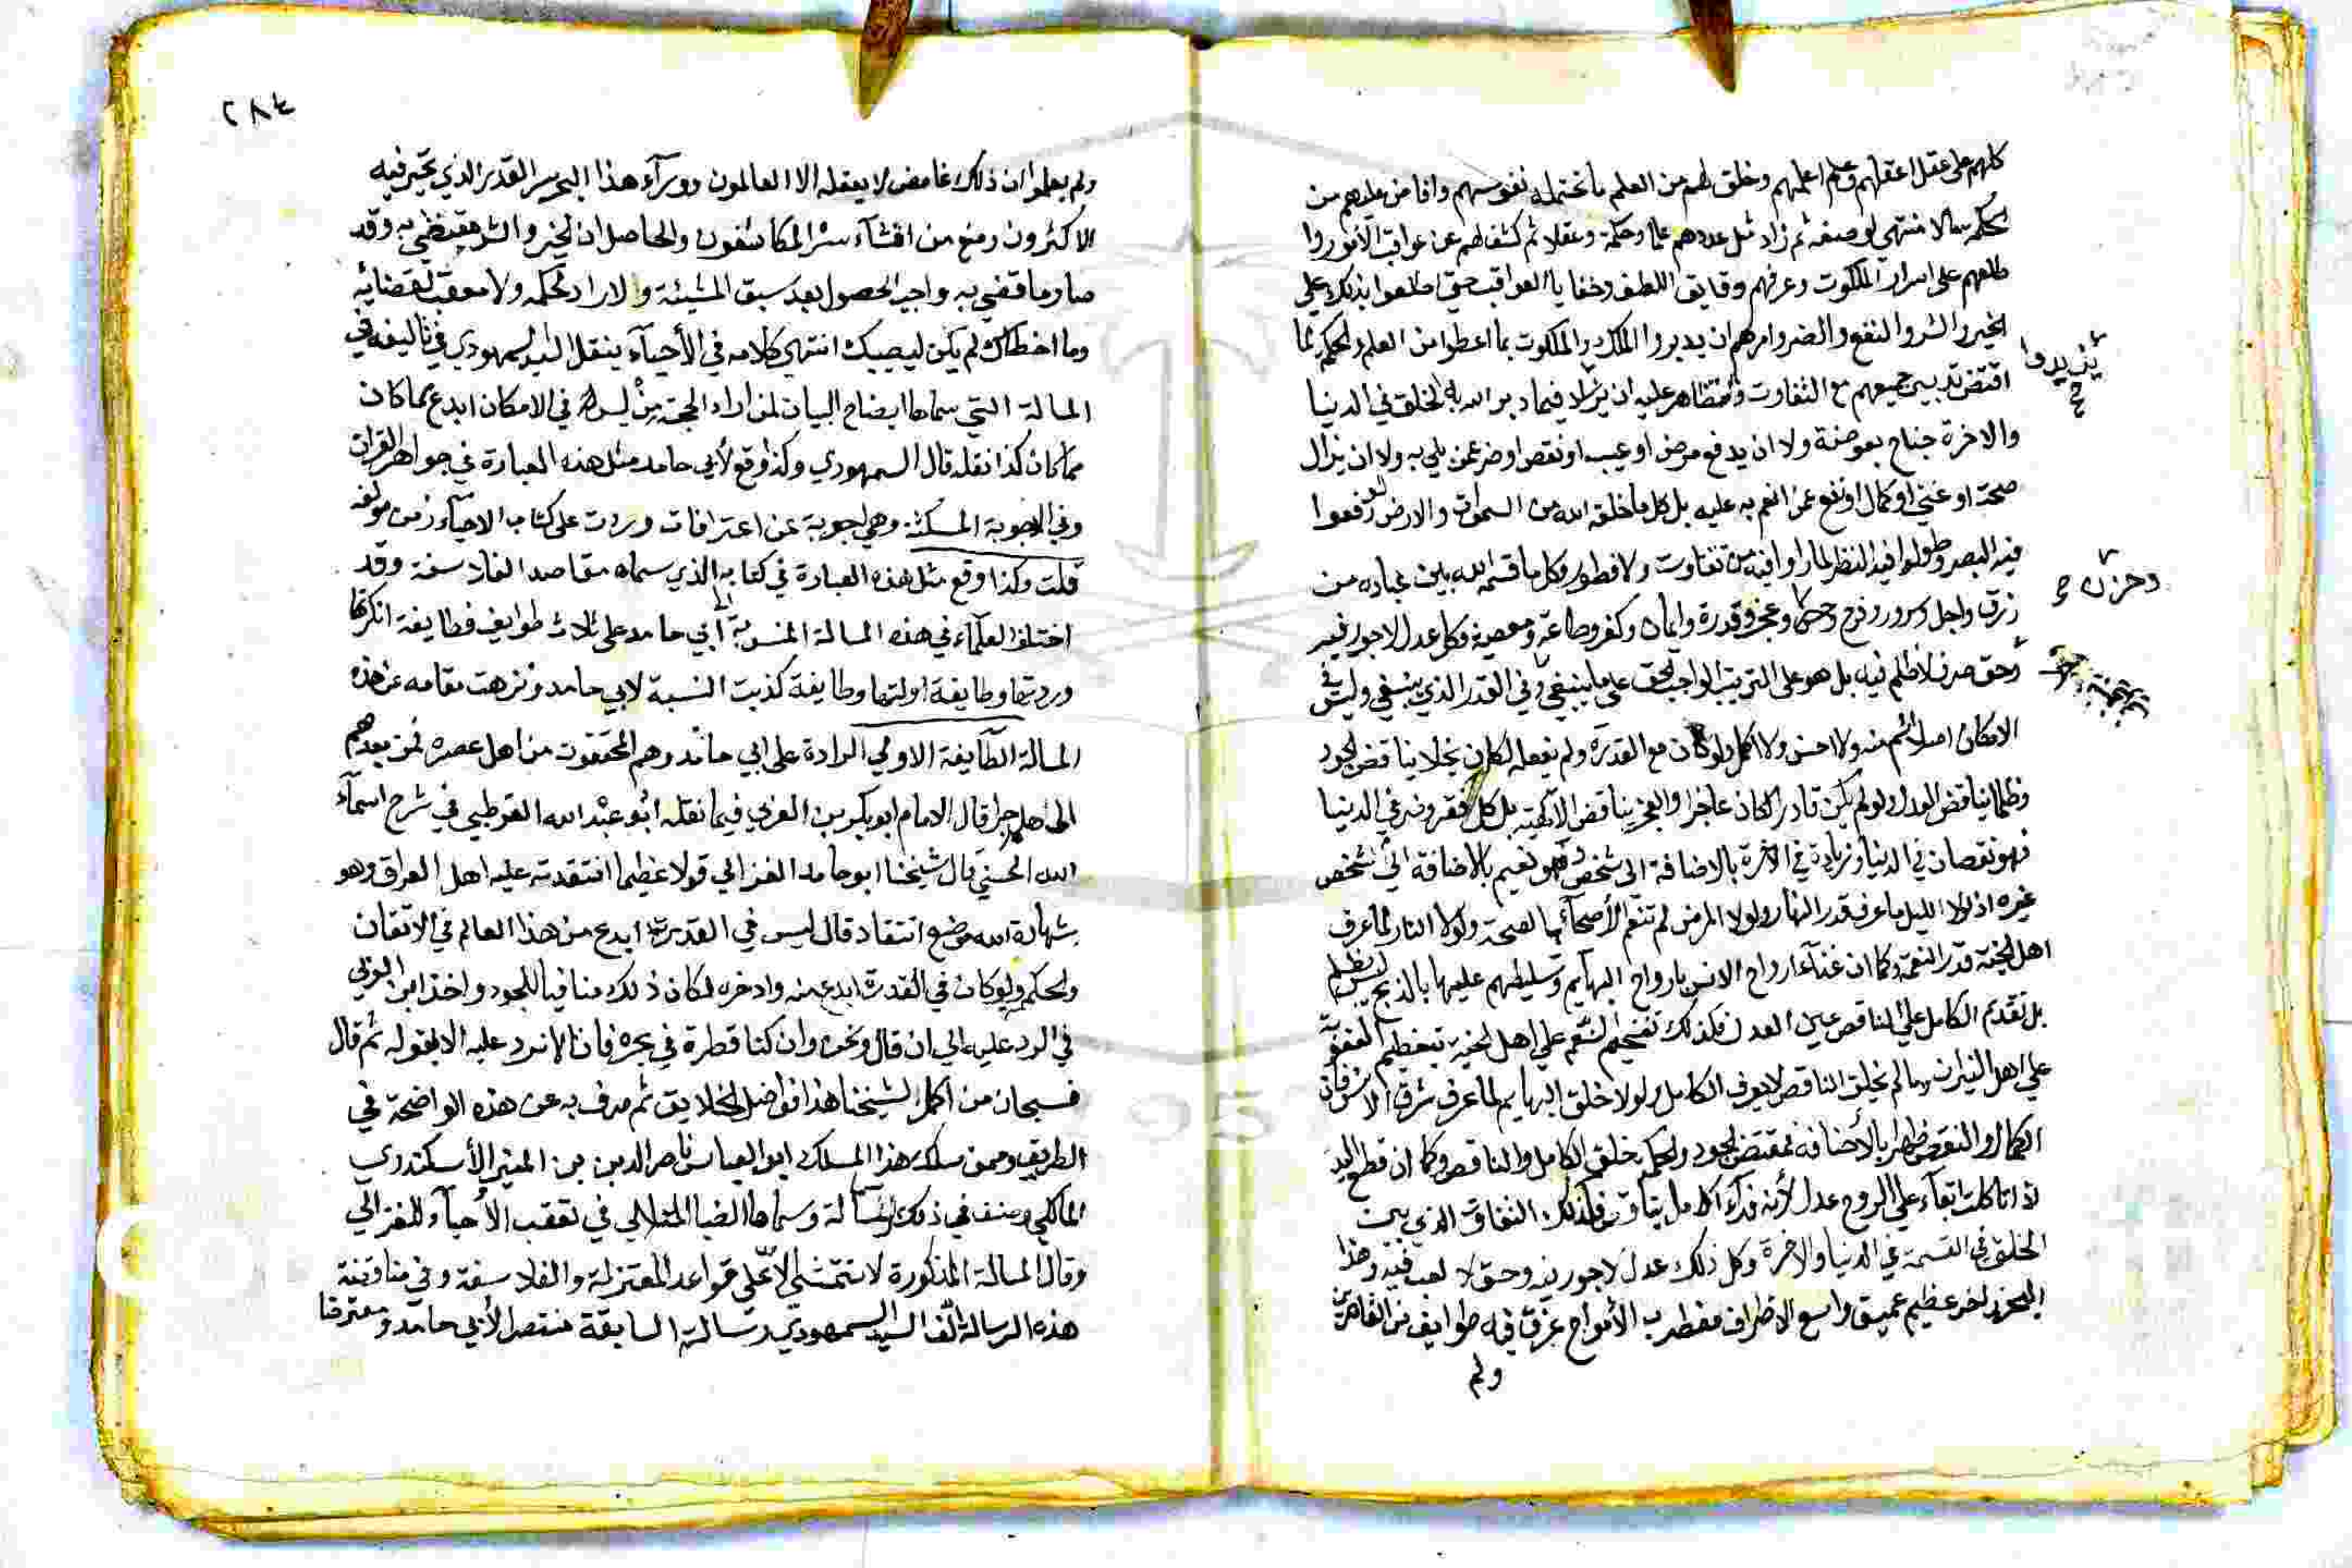 كلهم على عقل اعقلهم وعلم اعلمهم وخلق لهم من العلم ما تحتمله نفوسهم وافاض عليهم من
الحكمة ما لا منتهى لوصفه ثم زاد مثل عددهم علما وحكمة وعقلا ثم كشف لهم عن عواقب الامور وا
طلعهم على اسرار الملكوت وعرفهم دقايق اللطف وخفايا العواقب حتى اطلعوا بذلك على
الخير والشر والنفع والضر وامرهم ان يدبروا الملك والملكوت بما اعطوا من العلم والحكم لما
اقتضى تدبير جميعهم مع التفاوت والتظاهر عليه ان يزاد فيما دبر الله به الخلق في الدنيا
يزيدوا
والاخرة جناح بعوضة ولا ان يدفع مرض او عيب او نقص او ضر عمن بلي به ولا ان يزال
صحة او غنى او كمال او نفع عمن انعم به عليه بل كل ما خلقه الله من السموات والارض لو رفعوا
فيه البصر وطولوا فيه النظر لما راوا فيه من تفاوت ولا فطور وكل ما قسم الله بين عباده من
رزق واجل وسرور وفرح وعجز وقدرة وايمان وكفر وطاعة ومعصية وكل عدل لا جور فيه
وحزن
وحق صرف لا ظلم فيه بل هو على الترتيب الواجب الحق على ما ينبغي وفي القدر الذي ينبغي وليس في
الامكان اصلا اتم منه ولا احسن ولا اكمل ولو كان مع القدرة ولم يفعله لكان بخلا يناقض الجود
وظلما يناقض العدل ولو لم يكن قادرا لكان عاجزا والعجز يناقض الالهية بل كل فقر وضر في الدنيا
فهو نقصان في الدنيا وزيادة في الاخرة بالاضافة الى شخص فهو نعيم بالاضافة الى شخص
غيره اذ لولا الليل ما عرف قدر النهار ولولا المرض لم تنعم الأصحاء بالصحة ولولا النار لما عرف
اهل الجنة قدر النعمة وكما ان فداء ارواح الانس بارواح البهايم وتسليطهم عليها بالذبح ليس بظلم
بل تقديم الكامل على الناقص عين العدل فكذلك تفخيم النعم على اهل الجنة بتعظيم العقوبة
على اهل النيران وما لم يخلق الناقص لا يعرف الكامل ولولا خلق البهايم لما عرف شرف الانس فان
الكمال والنقص ظهر بالأضافة فمقتضى الجود والحكم خلق الكامل والناقص وكما ان قطع اليد
اذا تاكلت ابقاء على الروح عدل لأنه فداء كامل بناقص فكذلك التفاوت الذي بين
الخلق في القسمة في الدنيا والاخرة وكل ذلك عدل لا جور فيه وحق لا لعب فيه وهذا
البحر زاخر عظيم عميق واسع الاطراف مضطرب الأمواج غرق فيه طوايف من القاصرين
ولم
٢٨٤
ولم يعلموا ان ذلك غامض لا يعقله الا العالمون ووراء هذا البحر سر القدر الذي تحير فيه
الاكثرون ومنع من افشاء سره المكاشفون والحاصل ان الخير والشر مقتضي به وقد
صار ما قضي به واجب الحصول بعد سبق المشيئة ولا راد لحكمه ولا معقب لقضايه
وما اخطاك لم يكن ليصيبك انتهى كلامه في الأحياء بنقل السيد السمهودي في تاليفه في
المسالة التي سماها ايضاح البيان لمن اراد الحجة من ليس في الامكان ابدع مما كان
مما كان كذا نقله قال السمهودي وكذا وقع لأبي حامد مثل هذه العبارة في جواهر القران
وفي الاجوبة المسكتة وهي اجوبة عن اعتراضات وردت على كتاب الاحياء زمن مولفه
قلت وكذا وقع مثل هذه العبارة في كتابه الذي سماه مقاصد الفلاسفة وقد
اختلف العلماء في هذه المسالة المنسوبة الى ابي حامد على ثلاث طوايف فطايفة انكرتها
وردتها وطايفة اولتها وطايفة كذبت النسبة لابي حامد ونزهت مقامه عن هذه
المسالة الطايفة الاولى الرادة على ابي حامد وهم المحققون من اهل عصره فمن بعدهم
الى هلم جرا قال الامام ابو بكر بن العربي فيما نقله ابو عبد الله القرطبي في شرح اسماء
الله الحسنى قال شيخنا ابو حامد الغزالي قولا عظيما انتقدته عليه اهل العراق وهو
بشهادة الله موضع انتقاد قال ليس في القدرة ابدع من هذا العالم في الاتقان
والحكمة ولو كان في القدرة ابدع منه وادخره لكان ذلك منافيا للجود واخذ ابن العربي
في الرد عليه الى ان قال ونحن وان كنا قطرة في بحره فانا لا نرد عليه الا بقوله ثم قال
فسبحان من اكمل لشيخنا هذا فواضل الخلايق ثم صرف به عن هذه الواضحة في
الطريق وممن سلك هذا المسلك ابو العباس ناصر الدين بن المنير الأسكندري
المالكي وصنف في ذلك رسالة وسماها الضيا المتلالي في تعقب الأحياء للغزالي
وقال المسالة المذكورة لا تتمشى الا على قواعد المعتزلة والفلاسفة وفي مناقضة
هذه الرسالة الف السيد السمهودي رسالته السابقة منتصرا لأبي حامد ومعترفا